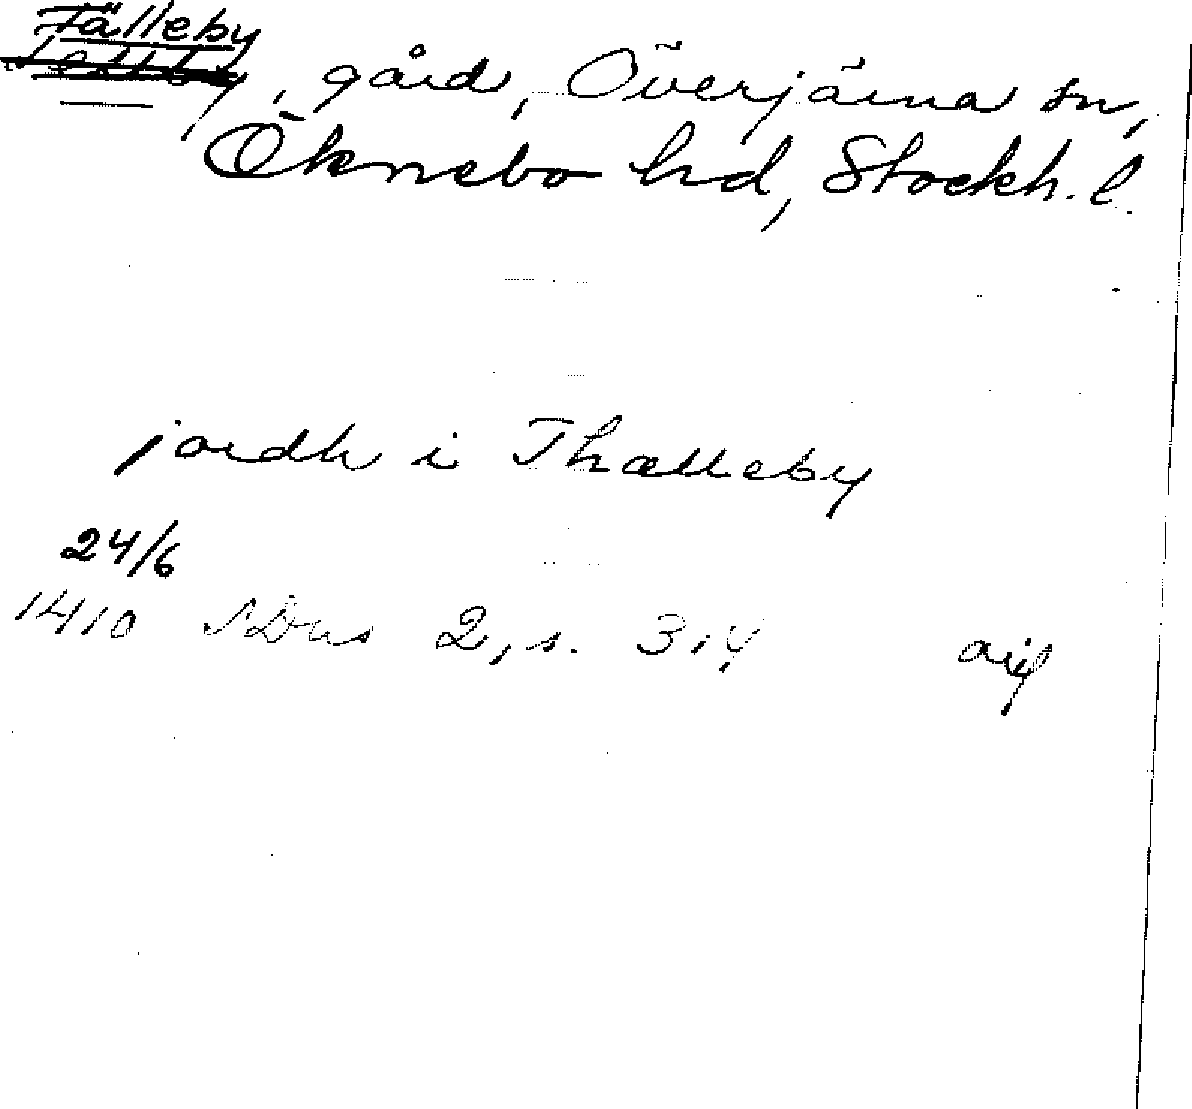 Fälleby
, gård, Överjärna sn,
Öknebo hd, Stockh. l.
jordh i Thælleby
24/6
1410 SDns 2, s. 314